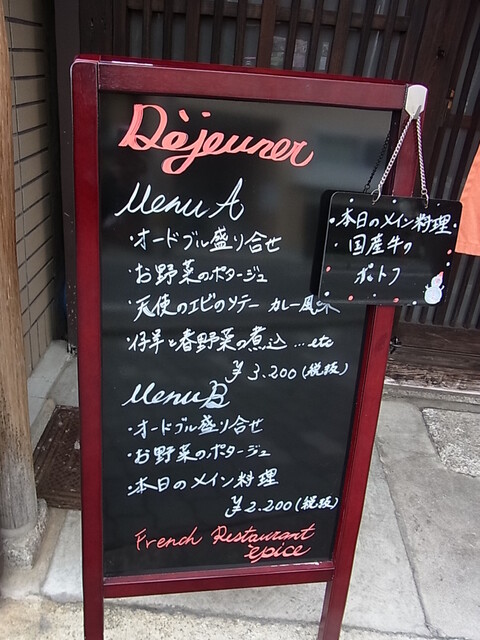 Déjeuner
Menu A
・オードブル盛り合せ
・お野菜のポタージュ
・天使のエビのソテー カレー風味
・仔羊と春野菜の煮込 ...etc
¥3.200(税抜)
Menu B
・オードブル盛り合せ
・お野菜のポタージュ
・本日のメイン料理
¥2.200(税抜)
French Restaurant
épice
・本日のメイン料理・
・国産牛の
ポトフ